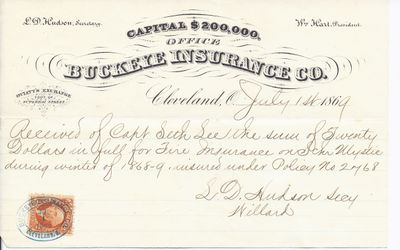 L.D. Hudson, Secretary.
Wm Hart, President.
CAPITAL $200,000.
OFFICE
BUCKEYE INSURANCE CO.
OVIATT'S EXCHANGE
FOOT OF
SUPERIOR STREET
Cleveland, O. July 1st 1869
Received of Capt Seth Lee the sum of Twenty
Dollars in full for Fire Insurance on Schr Mystic
during winter of 1868-9. insured under Policy No 2768
L. D. Hudson Secy
Willard